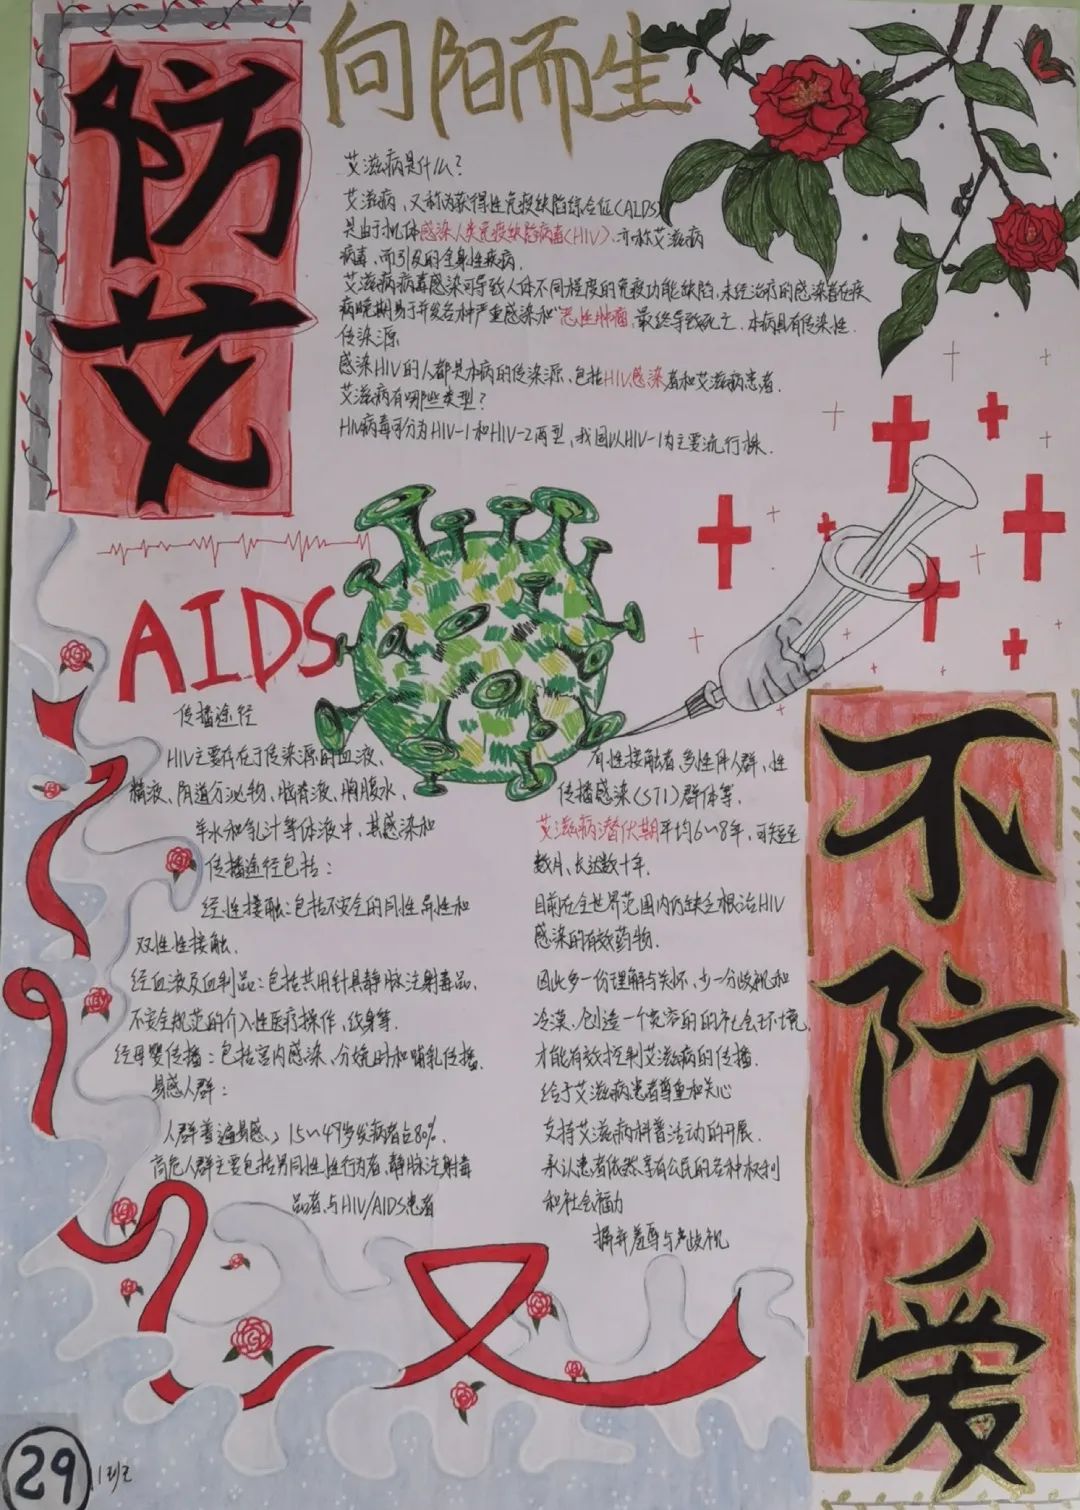 防艾
向阳而生
艾滋病是什么?
艾滋病,又称为获得性免疫缺陷综合征(AIDS)
是由于机体感染人类免疫缺陷病毒(HIV),亦称艾滋病
病毒,而引发的全身性疾病.
艾滋病病毒感染可导致人体不同程度的免疫功能缺陷,未经治疗的感染者在疾
病晚期易于并发各种严重感染和恶性肿瘤,最终导致死亡.本病具有传染性.
传染源
感染HIV的人都是本病的传染源,包括HIV感染者和艾滋病患者.
艾滋病有哪些类型?
HIV病毒可分为HIV-1和HIV-2两型,我国以HIV-1为主要流行株.
AIDS
传播途径
HIV主要存在于传染源的血液、
精液、阴道分泌物、脑脊液、胸腹水、
羊水和乳汁等体液中,其感染和
传播途径包括:
经性接触:包括不安全的同性异性和
双性性接触.
经血液及血制品:包括共用针具静脉注射毒品,
不安全规范的介入性医疗操作,纹身等.
经母婴传播:包括宫内感染、分娩时和哺乳传播.
易感人群:
人群普遍易感,15~49岁发病者占80%.
高危人群主要包括男同性性行为者,静脉注射毒
品者,与HIV/AIDS患者
有性接触者,多性伴人群、性
传播感染(STI)群体等.
艾滋病潜伏期平均6~8年,可短至
数月,长达数十年.
目前在全世界范围内仍缺乏根治HIV
感染的有效药物.
因此多一份理解与关怀,少一分歧视和
冷漠,创造一个宽容的的社会环境,
才能有效控制艾滋病的传播.
给予艾滋病患者尊重和关心
支持艾滋病科普活动的开展.
承认患者依然享有公民的各种权利
和社会福力
摒弃羞辱与歧视
不防爱
29
1班